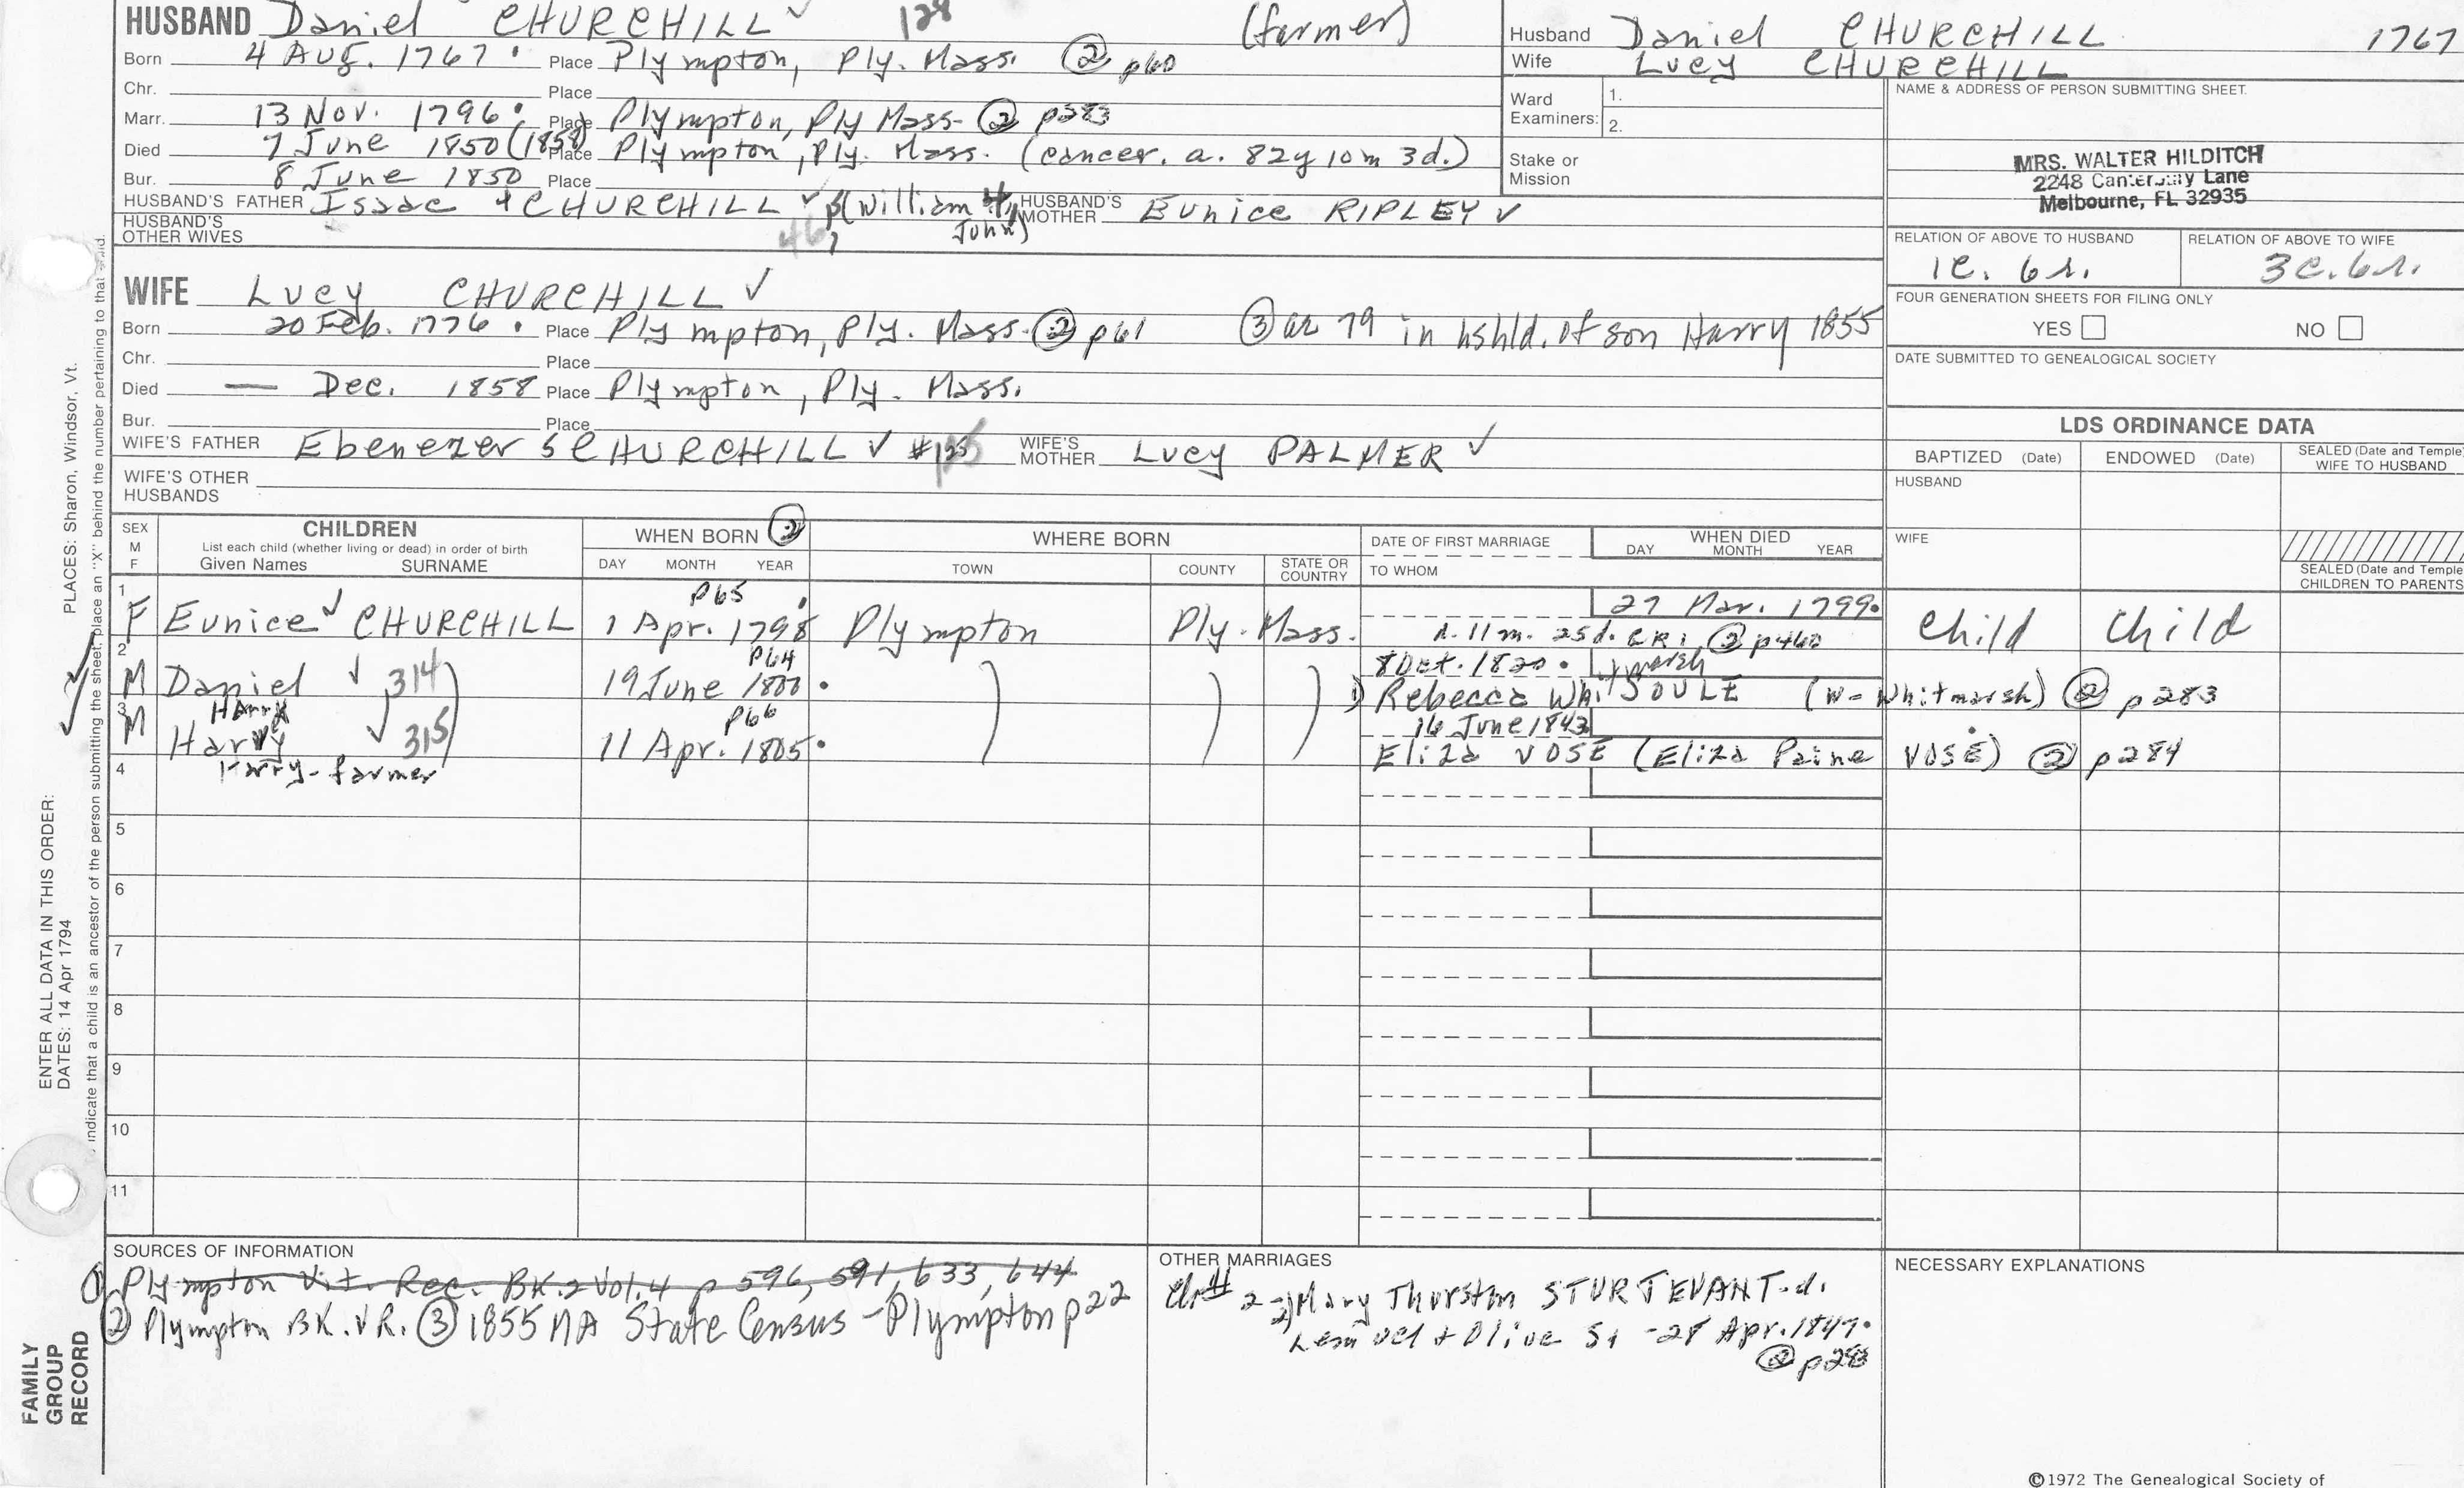 HUSBAND Daniel CHURCHILL ✓ 128 (farmer)
Born 4 Aug. 1767 Place Plympton, Ply. Mass. ② p60
Chr. Place
Marr. 13 Nov. 1796 Place Plympton, Ply Mass- ② p283
Died 7 June 1850 (1858) Place Plympton, Ply. Mass. (cancer. a. 82y 10m 3d.)
Bur. 8 June 1850 Place
HUSBAND'S FATHER Isaac 4 CHURCHILL ✓ (William HUSBAND'S MOTHER Eunice RIPLEY ✓
John)
HUSBAND'S OTHER WIVES 46
Husband Daniel CHURCHILL 1767
Wife Lucy CHURCHILL
Ward Examiners: 1.
2.
Stake or Mission
NAME & ADDRESS OF PERSON SUBMITTING SHEET.
MRS. WALTER HILDITCH
2248 Canterbury Lane
Melbourne, FL 32935
RELATION OF ABOVE TO HUSBAND RELATION OF ABOVE TO WIFE
1c. 6r. 3c. 6r.
FOUR GENERATION SHEETS FOR FILING ONLY
YES NO
DATE SUBMITTED TO GENEALOGICAL SOCIETY
WIFE Lucy CHURCHILL ✓
Born 20 Feb. 1776 Place Plympton, Ply. Mass- ② p61 ③ ae 79 in hshld. of son Harry 1855
Chr. Place
Died — Dec. 1858 Place Plympton, Ply. Mass.
Bur. Place
WIFE'S FATHER Ebenezer 5 CHURCHILL ✓ WIFE'S MOTHER Lucy PALMER ✓
WIFE'S OTHER HUSBANDS
LDS ORDINANCE DATA
BAPTIZED (Date) ENDOWED (Date) SEALED (Date and Temple) WIFE TO HUSBAND
HUSBAND
WIFE
SEALED (Date and Temple CHILDREN TO PARENTS
SEX M F CHILDREN WHEN BORN ② WHERE BORN DATE OF FIRST MARRIAGE WHEN DIED
List each child (whether living or dead) in order of birth
Given Names SURNAME DAY MONTH YEAR TOWN COUNTY STATE OR COUNTRY TO WHOM DAY MONTH YEAR
p65
1 F Eunice ✓ CHURCHILL 1 Apr. 1798 Plympton Ply. Mass. 27 Mar. 1799 child child
a. 11m. 25d. CR1 ② p460
p64
8 Oct. 1820
2 M Daniel ✓ 314 19 June 1800 1) Rebecca Whit SOULE (W= Whitmarsh) ② p283
marsh
Harry p66 16 June 1843
3 M Harvey ✓ 315 11 Apr. 1805 Eliza VOSE (Eliza Paine VOSE) ② p284
Harry-farmer
4
5
6
7
8
9
10
11
SOURCES OF INFORMATION
① Plympton Vit. Rec. BK.2 Vol.4 p 596, 591, 633, 644
② Plympton BK. VR. ③ 1855 MA State Census - Plympton p22
OTHER MARRIAGES
Ch# 2-2) Mary Thurston STURTEVANT-d.
Lemuel + Olive St -28 Apr. 1847
② p283
NECESSARY EXPLANATIONS
©1972 The Genealogical Society of
PLACES: Sharon, Windsor, Vt.
ENTER ALL DATA IN THIS ORDER:
DATES: 14 Apr 1794
indicate that a child is an ancestor of the person submitting the sheet, place an "X" behind the number pertaining to that child.
FAMILY
GROUP
RECORD